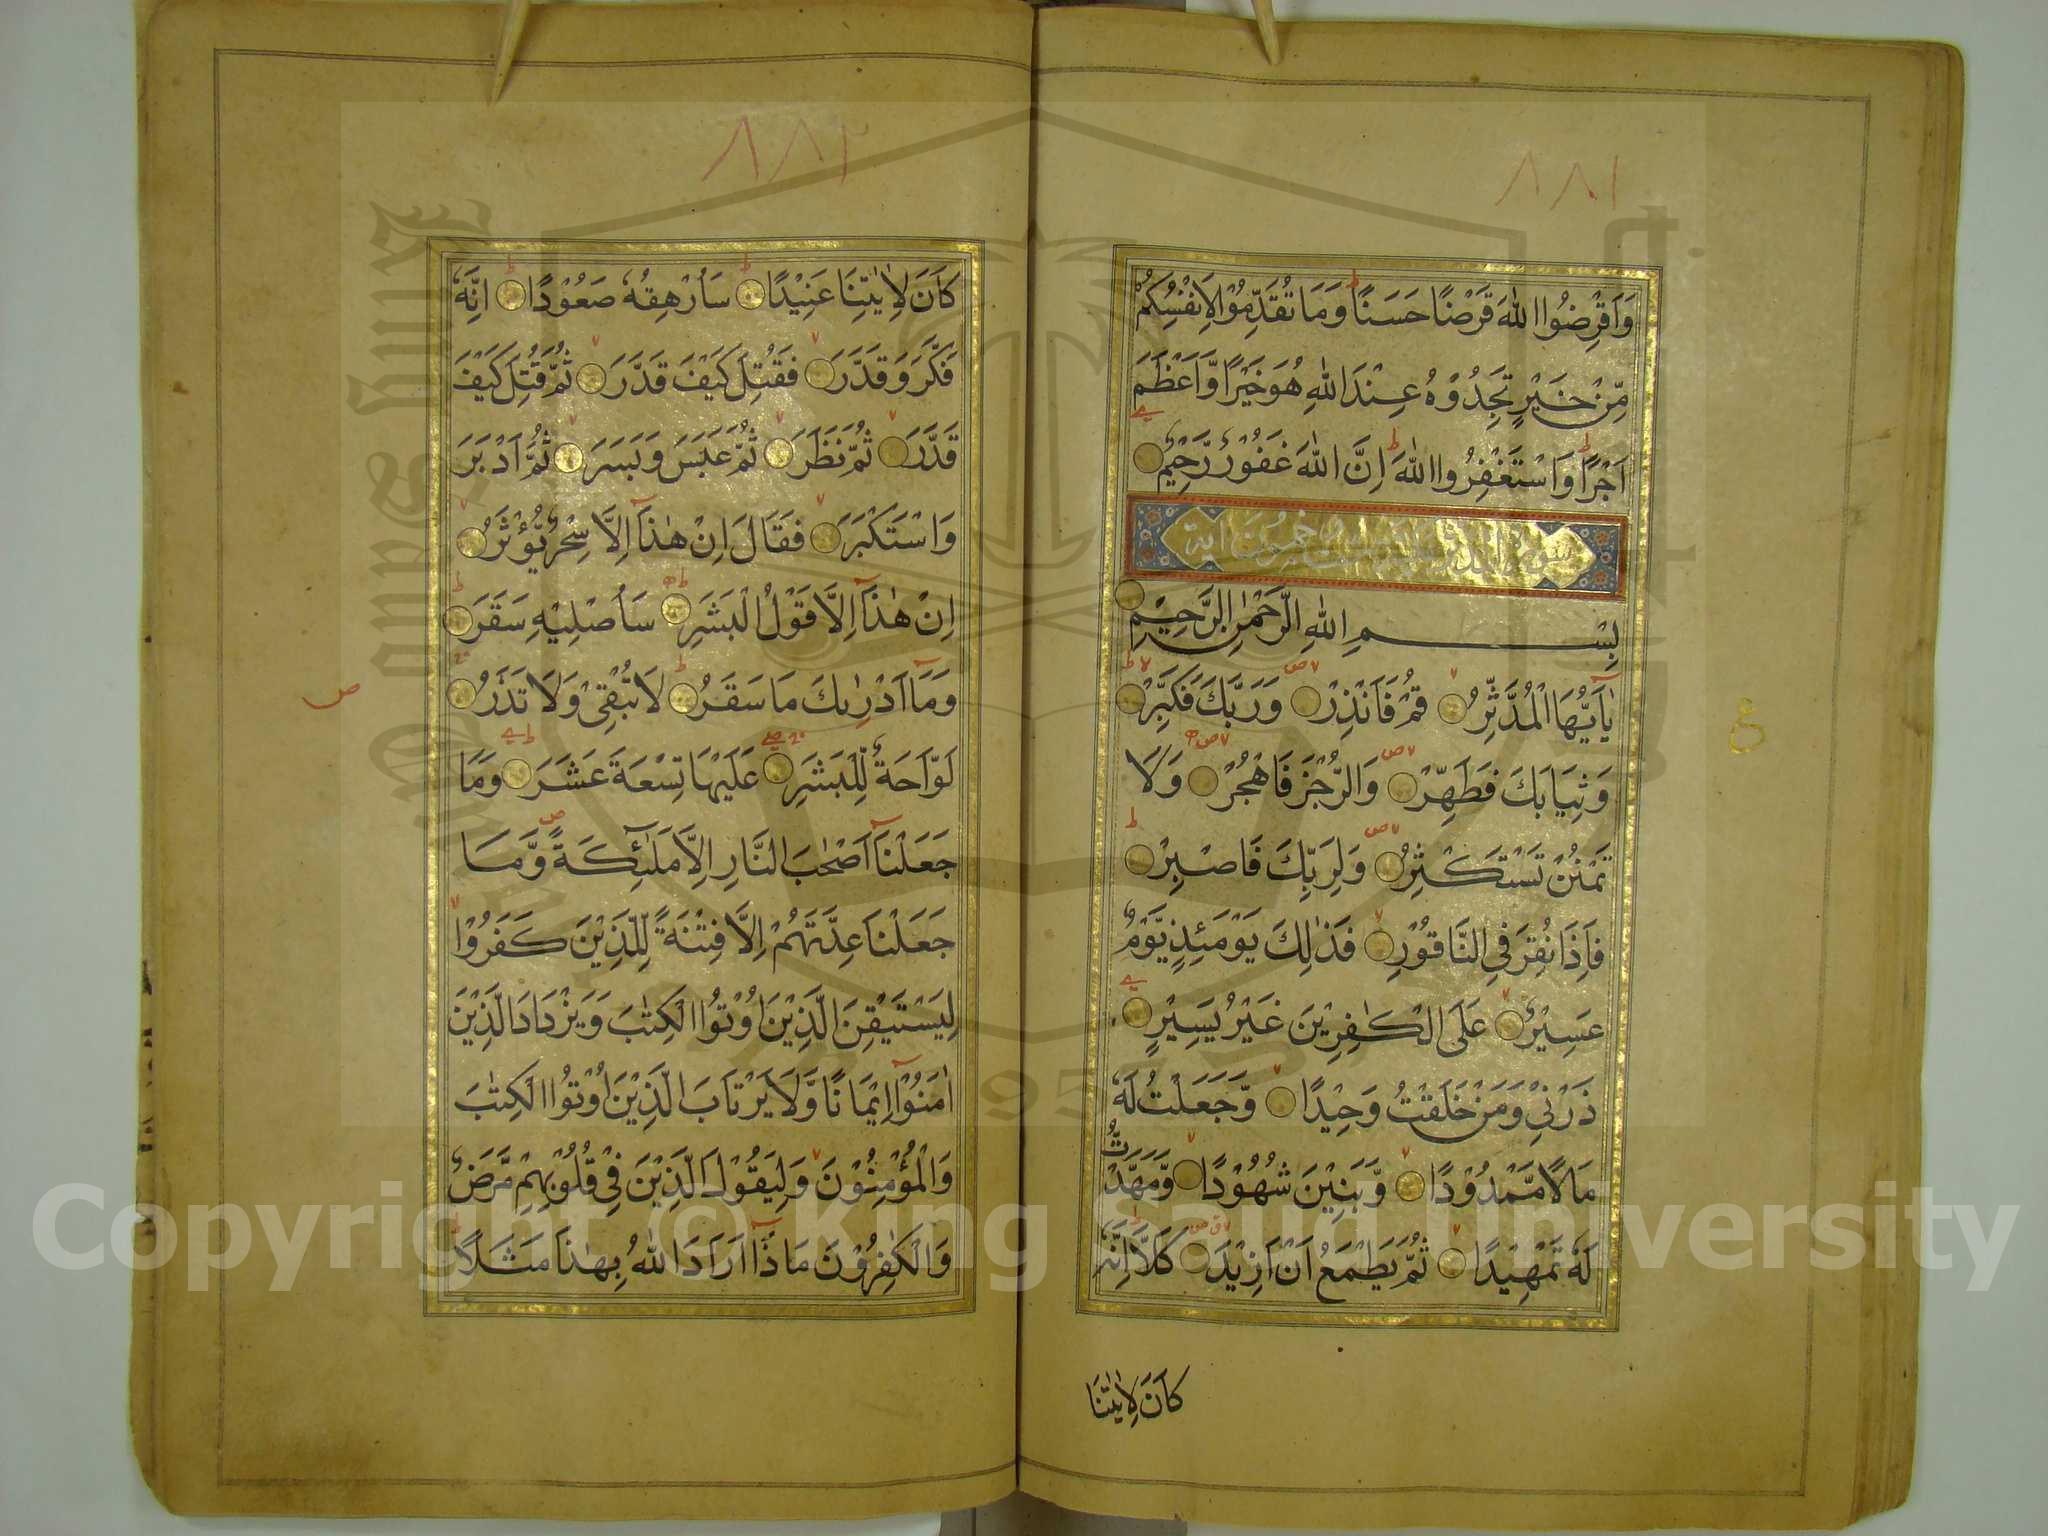 ٨٨١
وَاَقْرِضُوا اللّٰهَ قَرْضًا حَسَنًا ط وَمَا تُقَدِّمُوْا لِاَنْفُسِكُمْ
مِّنْ خَيْرٍ تَجِدُوْهُ عِنْدَ اللّٰهِ هُوَ خَيْرًا وَّاَعْظَمَ
اَجْرًا ط وَاسْتَغْفِرُوا اللّٰهَ ط اِنَّ اللّٰهَ غَفُوْرٌ رَّحِيْمٌ
سورة المدثر خمسون اية
بِسْمِ اللّٰهِ الرَّحْمٰنِ الرَّحِيْمِ
يٰٓاَيُّهَا الْمُدَّثِّرُ قُمْ فَاَنْذِرْ وَرَبَّكَ فَكَبِّرْ
وَثِيَابَكَ فَطَهِّرْ وَالرُّجْزَ فَاهْجُرْ وَلَا
تَمْنُنْ تَسْتَكْثِرُ وَلِرَبِّكَ فَاصْبِرْ
فَاِذَا نُقِرَ فِي النَّاقُوْرِ فَذٰلِكَ يَوْمَئِذٍ يَّوْمٌ
عَسِيْرٌ عَلَى الْكٰفِرِيْنَ غَيْرُ يَسِيْرٍ
ع
ذَرْنِيْ وَمَنْ خَلَقْتُ وَحِيْدًا وَّجَعَلْتُ لَهٗ
مَالًا مَّمْدُوْدًا وَّبَنِيْنَ شُهُوْدًا وَّمَهَّدْتُّ
لَهٗ تَمْهِيْدًا ثُمَّ يَطْمَعُ اَنْ اَزِيْدَ كَلَّا اِنَّهٗ
كَانَ لِاٰيٰتِنَا
٨٨٢
كَانَ لِاٰيٰتِنَا عَنِيْدًا سَاُرْهِقُهٗ صَعُوْدًا اِنَّهٗ
فَكَّرَ وَقَدَّرَ فَقُتِلَ كَيْفَ قَدَّرَ ثُمَّ قُتِلَ كَيْفَ
قَدَّرَ ثُمَّ نَظَرَ ثُمَّ عَبَسَ وَبَسَرَ ثُمَّ اَدْبَرَ
وَاسْتَكْبَرَ فَقَالَ اِنْ هٰذَآ اِلَّا سِحْرٌ يُّؤْثَرُ
اِنْ هٰذَآ اِلَّا قَوْلُ الْبَشَرِ سَاُصْلِيْهِ سَقَرَ
وَمَآ اَدْرٰىكَ مَا سَقَرُ لَا تُبْقِيْ وَلَا تَذَرُ
ص
لَوَّاحَةٌ لِّلْبَشَرِ عَلَيْهَا تِسْعَةَ عَشَرَ وَمَا
جَعَلْنَآ اَصْحٰبَ النَّارِ اِلَّا مَلٰٓئِكَةً ص وَّمَا
جَعَلْنَا عِدَّتَهُمْ اِلَّا فِتْنَةً لِّلَّذِيْنَ كَفَرُوْا
لِيَسْتَيْقِنَ الَّذِيْنَ اُوْتُوا الْكِتٰبَ وَيَزْدَادَ الَّذِيْنَ
اٰمَنُوْٓا اِيْمَانًا وَّلَا يَرْتَابَ الَّذِيْنَ اُوْتُوا الْكِتٰبَ
وَالْمُؤْمِنُوْنَ وَلِيَقُوْلَ الَّذِيْنَ فِيْ قُلُوْبِهِمْ مَّرَضٌ
وَالْكٰفِرُوْنَ مَاذَآ اَرَادَ اللّٰهُ بِهٰذَا مَثَلًا ط
Copyright © King Saud University